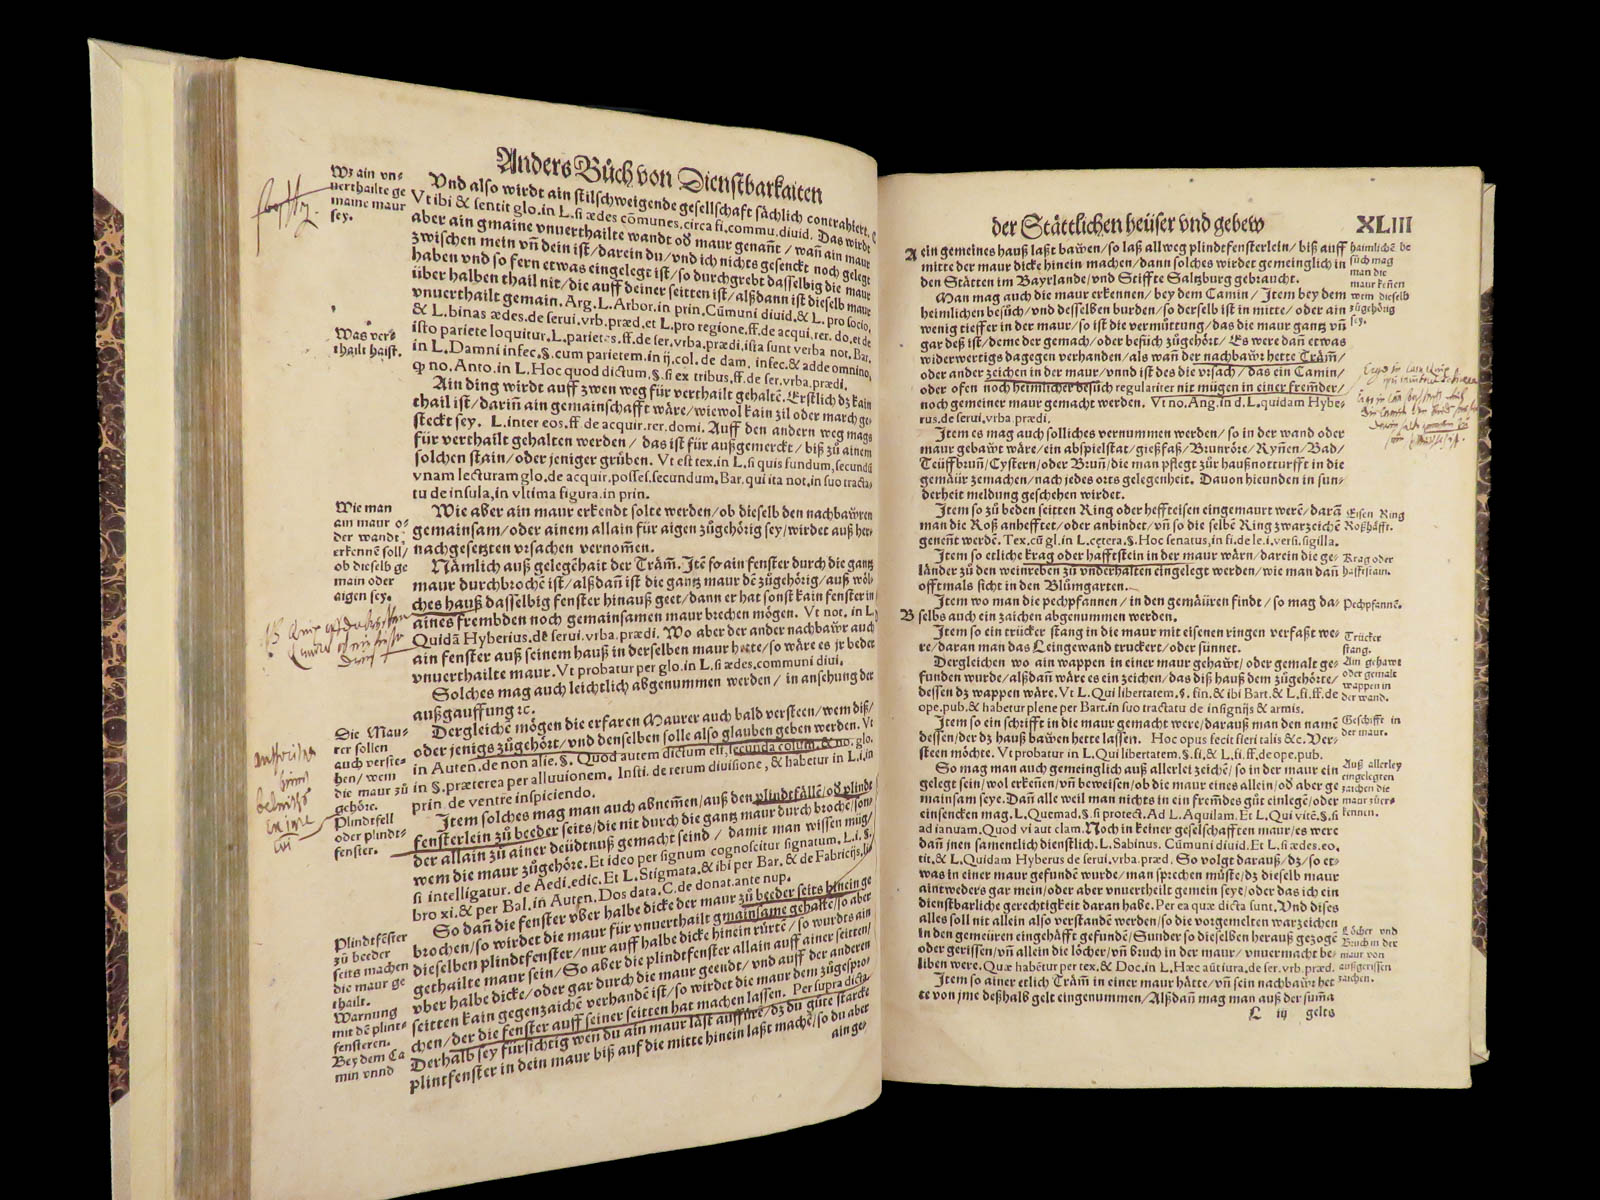 Anders Bůch von Dienstbarkaiten
Wz ain vn=
uerthailte ge
maine maur
sey.
Vnd also wirdt ain stilschweigende geselschaft sächlich contrahiert.
Vt ibi & sentit glo. in L. si ædes cõmunes. circa fi. commu. diuid. Das wirdt
aber ain gmaine vnuerthailte wandt od maur genañt / wañ ain maur
zwischen mein vñ dein ist / darein du / vnd ich nichts gesenckt noch gelegt
haben vnd so fern etwas eingelegt ist / so durchgrebt dasselbig die maur
über halben thail nit / die auff deiner seitten ist / alßdañ ist dieselb maur
vnuerthailt gemain. Arg. L. Arbor. in prin. Cũmuni diuid. & L. pro socio.
& L. binas ædes. de serui. vrb. præd. et L. pro regione. ff. de acqui. rer. do. et de
isto pariete loquitur. L. parietes. ff. de ser. vrba. prædi. ista sunt verba not. Bar.
in L. Damni infec. §. cum parietem. in ij. col. de dam. infec. & adde omnino,
ꝙ no. Anto. in L. Hoc quod dictum. §. si ex tribus. ff. de ser. vrba. prædi.
Was ver=
thailt haist.
Ain ding wirdt auff zwen weg für verthailt gehaltẽ. Erstlich dz kain
thail ist / dariñ ain gemainschafft wäre / wiewol kain zil oder march ge=
steckt sey. L. inter eos. ff. de acquir. rer. domi. Auff den andern weg mags
für verthailt gehalten werden / das ist für außgemerckt / biß zů ainem
solchen stain / oder jeniger grüben. Vt est tex. in L. si quis fundum, secundũ
vnam lecturam glo. de acquir. possei. secundum. Bar. qui ita not. in suo tracta=
tu de insula. in vltima figura. in prin.
Wie man
ain maur o=
der wandt
erkennẽ soll /
ob dieselb ge
main oder
aigen sey.
Wie aber ain maur erkendt solte werden / ob dieselb den nachbawren
gemainsam / oder ainem allain für aigen zůgehörig sey / wirdet auß her=
nachgesetzten vrsachen vernom̃en.
Nämlich auß gelegẽhait der Träm̃. Itẽ so ain fenster durch die gantz
maur durchbrochẽ ist / alßdañ ist die gantz maur dẽ zůgehörig / auß wöl=
ches hauß dasselbig fenster hinauß geet / dann er hat sonst kain fenster in
aines frembden noch gemainsamen maur brechen mögen. Vt not. in L.
Quidã Hyberius. de serui. vrba. prædi. Wo aber der ander nachbawr auch
ain fenster auß seinem hauß in derselben maur hette / so wäre es jr beder
vnuerthailte maur. Vt probatur per glo. in L. si ædes. communi diui.
Solches mag auch leichtlich abgenummen werden / in ansehung der
außgauffung ꝛc.
Die Mau=
rer sollen
auch verste=
hen / wem
die maur zů
gehöre.
Plindtfell
oder plindt=
fenster.
Dergleichẽ mögen die erfaren Maurer auch bald versteen / wem diß /
oder jenigs zůgehört / vnd denselben solle also glauben geben werden. Vt
in Auten. de non alie. §. Quod autem dictum est. secunda colum. & no. glo.
in §. præterea per alluuionem. Insti. de rerum diuisione, & habetur in L. i. in
prin. de ventre inspiciendo.
Item solches mag man auch abnem̃en / auß den plindtfällẽ / od plindt
fensterlein zů beeder seits / die nit durch die gantz maur durch brochẽ / son=
der allain zů ainer deüdtnuß gemacht seind / damit man wissen müg /
wem die maur zůgehöre. Et ideo per signum cognoscitur signatum. L. i. §.
si intelligatur. de Aedi. edic. Et L. Stigmata. & ibi per Bar. & de Fabricijs. li=
bro xi. & per Bal. in Auten. Dos data. C. de donat. ante nup.
Plindtfẽster
zů beeder
seits machen
die maur ge
thailt.
Warnung
mit dẽ plint=
fensteren.
Bey dem Ca
min vnnd
So dañ die fenster vber halbe dicke der maur zů beeder seits hinein ge
brochen / so wirdet die maur für vnuerthailt gmainsame gehaltẽ / so aber
dieselben plindtfenster / nur auff halbe dicke hinein rürtẽ / so wurdts ain
gethailte maur sein / So aber die plindtfenster allain auff ainer seitten /
vber halbe dicke / oder gar durch die maur geendt / vnd auff der anderen
seitten kain gegenzaichẽ verhandẽ ist / so wirdet die maur dem zůgespro=
chen / der die fenster auff seiner seitten hat machen lassen. Per supra dicta.
Derhalb sey fürsichtig wen du ain maur läst auffüre / dz du gůte starcke
plintfenster in dein maur biß auf die mitte hinein laßt machẽ / so du aber
ain ge=
der Stättlichen heüser vnd gebew
XLIII
A
ein gemeines hauß laßt bawen / so laß allweg plindtfensterlein / biß auff
mitte der maur dicke hinein machen / dann solches wirdet gemeinglich in
den Stätten im Bayrlande / vnd Stiffte Saltzburg gebraucht.
haimlichẽ be
süch mag
man die
maur keñen
wem dieselb
zůgehörig
sey.
Man mag auch die maur erkennen / bey dem Camin / Item bey dem
heimlichen besůch / vnd desselben burden / so derselb ist in mitte / oder ain
wenig tieffer in der maur / so ist die vermůttung / das die maur gantz vñ
gar deß ist / deme der gemach / oder besůch zůgehört / Es were dañ etwas
widerwertigs dagegen verhanden / als wañ der nachbawr hette Träm̃ /
oder ander zeichen in der maur / vnnd ist des die vrsach / das ein Camin /
oder ofen noch heimlicher besůch regulariter nit mügen in einer frem̃der /
noch gemeiner maur gemacht werden. Vt no. Ang. in d. L. quidam Hybe=
rus. de serui. vrba prædi.
Item es mag auch solliches vernummen werden / so in der wand oder
maur gebawt wäre / ein abspielstat / gießfaß / Brunröre / Ryñen / Bad /
Teüffbruñ / Cystern / oder Bruñ / die man pflegt zůr haußnotturfft in die
gemäür zemachen / nach jedes orts gelegenheit. Dauon hieunden in sun=
derheit meldung geschehen wirdet.
Item so zů beden seitten Ring oder hefftejsen eingemaurt werẽ / darã
man die Roß anhefftet / oder anbindet / vñ so die selbẽ Ring zwarzeichẽ
geneñt werdẽ. Tex. cũ gl. in L. cetera. §. Hoc senatus. in fi. de le. i. versi. sigilla.
Eisen Ring
Roßhäfft.
Item so etliche krag oder hafftstein in der maur wärn / darein die ge=
länder zů den weinreben zů vnderhalten eingelegt werden / wie man dañ
offtmals sicht in den Blůmgarten.
Krag oder
hafftstain.
Item wo man die pechpfannen / in den gemäüren findt / so mag da=
B
selbs auch ein zaichen abgenummen werden.
Pechpfannẽ.
Item so ein trücker stang in die maur mit eisenen ringen verfaßt we=
re / daran man das Leingewand truckert / oder sünnet.
Trücker
stang.
Dergleichen wo ain wappen in einer maur gehawt / oder gemalt ge=
funden wurde / alßdañ wäre es ein zeichen / das diß hauß dem zůgehörte /
dessen dz wappen wäre. Vt L. Qui libertatem. §. fin. & ibi Bart. & L. si. ff. de
ope. pub. & habetur plene per Bart. in suo tractatu de insignijs & armis.
Ain gehawt
oder gemalt
wappen in
der wand.
Item so ein schrifft in die maur gemacht were / darauß man den namẽ
dessen / der dz hauß bawen hette lassen. Hoc opus fecit fieri talis &c. Ver=
steen möchte. Vt probatur in L. Qui libertatem. §. fi. & L. fi. ff. de ope. pub.
Geschifft in
der maur.
So mag man auch gemeinglich auß allerlei zeichẽ / so in der maur ein
gelegt sein / wol erkeñen / vñ beweisen / ob die maur eines allein / od aber ge
mainsam seye. Dañ alle weil man nichts in ein fremdes gůt einlege / oder
einsencken mag. L. Quemad. §. si protect. Ad L. Aquilam. Et L. Qui vitẽ. §. si
ad ianuam. Quod vi aut clam. Noch in keiner geselschafften maur / es were
dañ jnen samentlich dienstlich. L. Sabinus. Cũmuni diuid. Et L. si ædes. eo.
tit. & L. Quidam Hyberus de serui. vrba. præd. So volgt darauß / dz / so et=
was in einer maur gefundẽ wurde / man sprechen müßte / dz dieselb maur
aintweders gar mein / oder aber vnuerthailt gemein seye / oder das ich ein
dienstbarliche gerechtigkeit daran habe. Per ea quæ dicta sunt. Vnd dises
alles soll nit allein also verstandẽ werden / so die vorgemelten warzeichen
in den gemeüren eingehäfft gefundẽ / Sunder so dieselben herauß gezogẽ
oder gerissen / vñ allein die löcher / vñ bruch in der maur / vnuermacht be=
liben were. Quæ habẽtur per tex. & Doc. in L. Hæc aũt iura. de ser. vrb. præd.
Auß allerley
eingelegten
zaichen die
maur zůer=
kennen.
Löcher vnd
Bruch in der
maur von
außgerissen
zaichen.
Item so ainer etlich Träm̃ in einer maur hätte / vñ sein nachbawr het
te von jme deßhalb gelt eingenummen / Alßdañ mag man auß der sum̃a
L iij
gelts